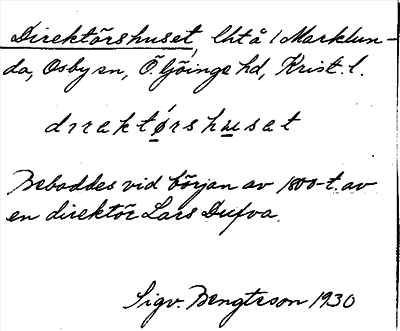 Direktörshuset, lht å 1 Marklun-
da, Osby sn, Ö. Göinge hd, Krist. l.
dıraktǿrshusat
Beboddes vid början av 1800-t. av
en direktör Lars Dufva.
Sigv. Bengtsson 1930